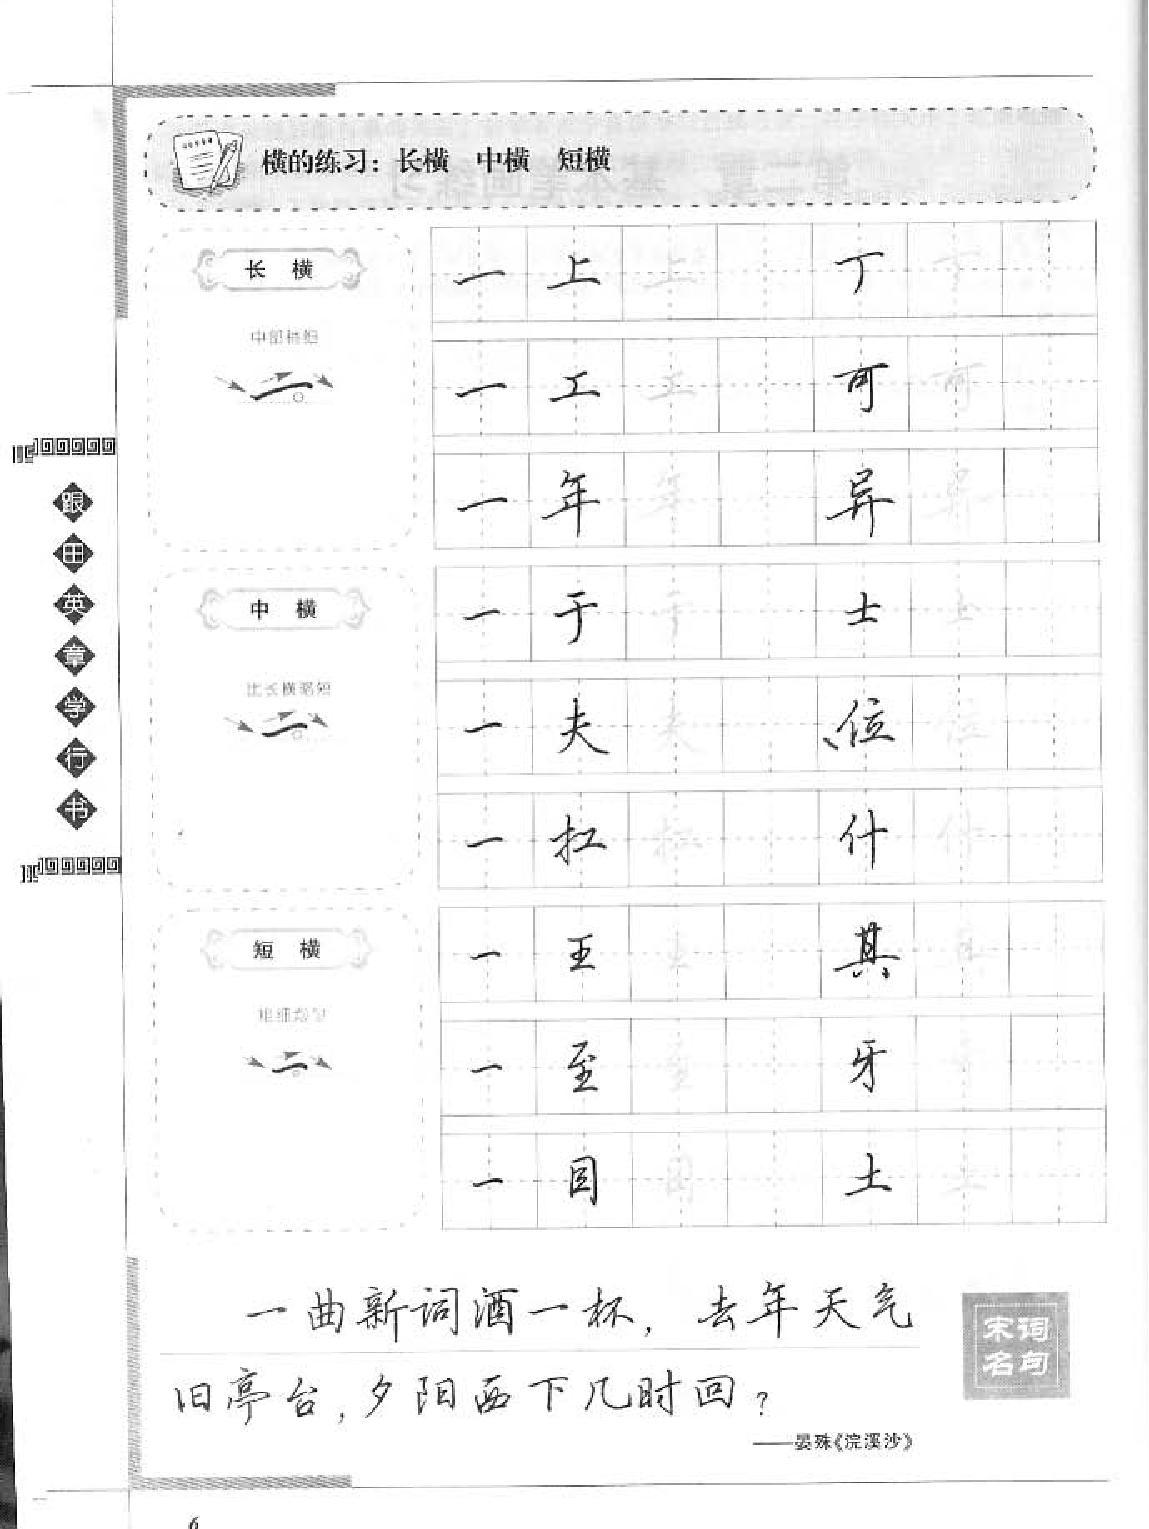 横的练习：长横 中横 短横
跟田英章学行书
长横
中部稍细
一 上 上 丁 丁
一 工 工 可 可
一 年 年 异 异
中横
比长横略短
一 于 于 士 士
一 夫 夫 位 位
一 扛 扛 什 什
短横
粗细均匀
一 王 王 其 其
一 至 至 牙 牙
一 目 目 土 土
一曲新词酒一杯，去年天气
旧亭台，夕阳西下几时回？
——晏殊《浣溪沙》
宋词
名句
6